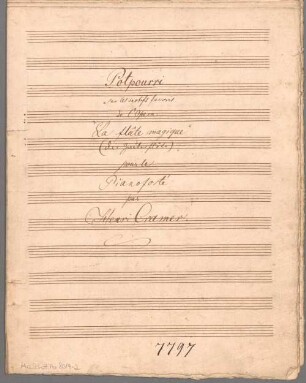 Potpourri
sur les motifs favoris
de l'Opéra
"La flûte magique"
(die Zauberflöte)
pour le
Pianoforte
par
Henri Cramer.
7797